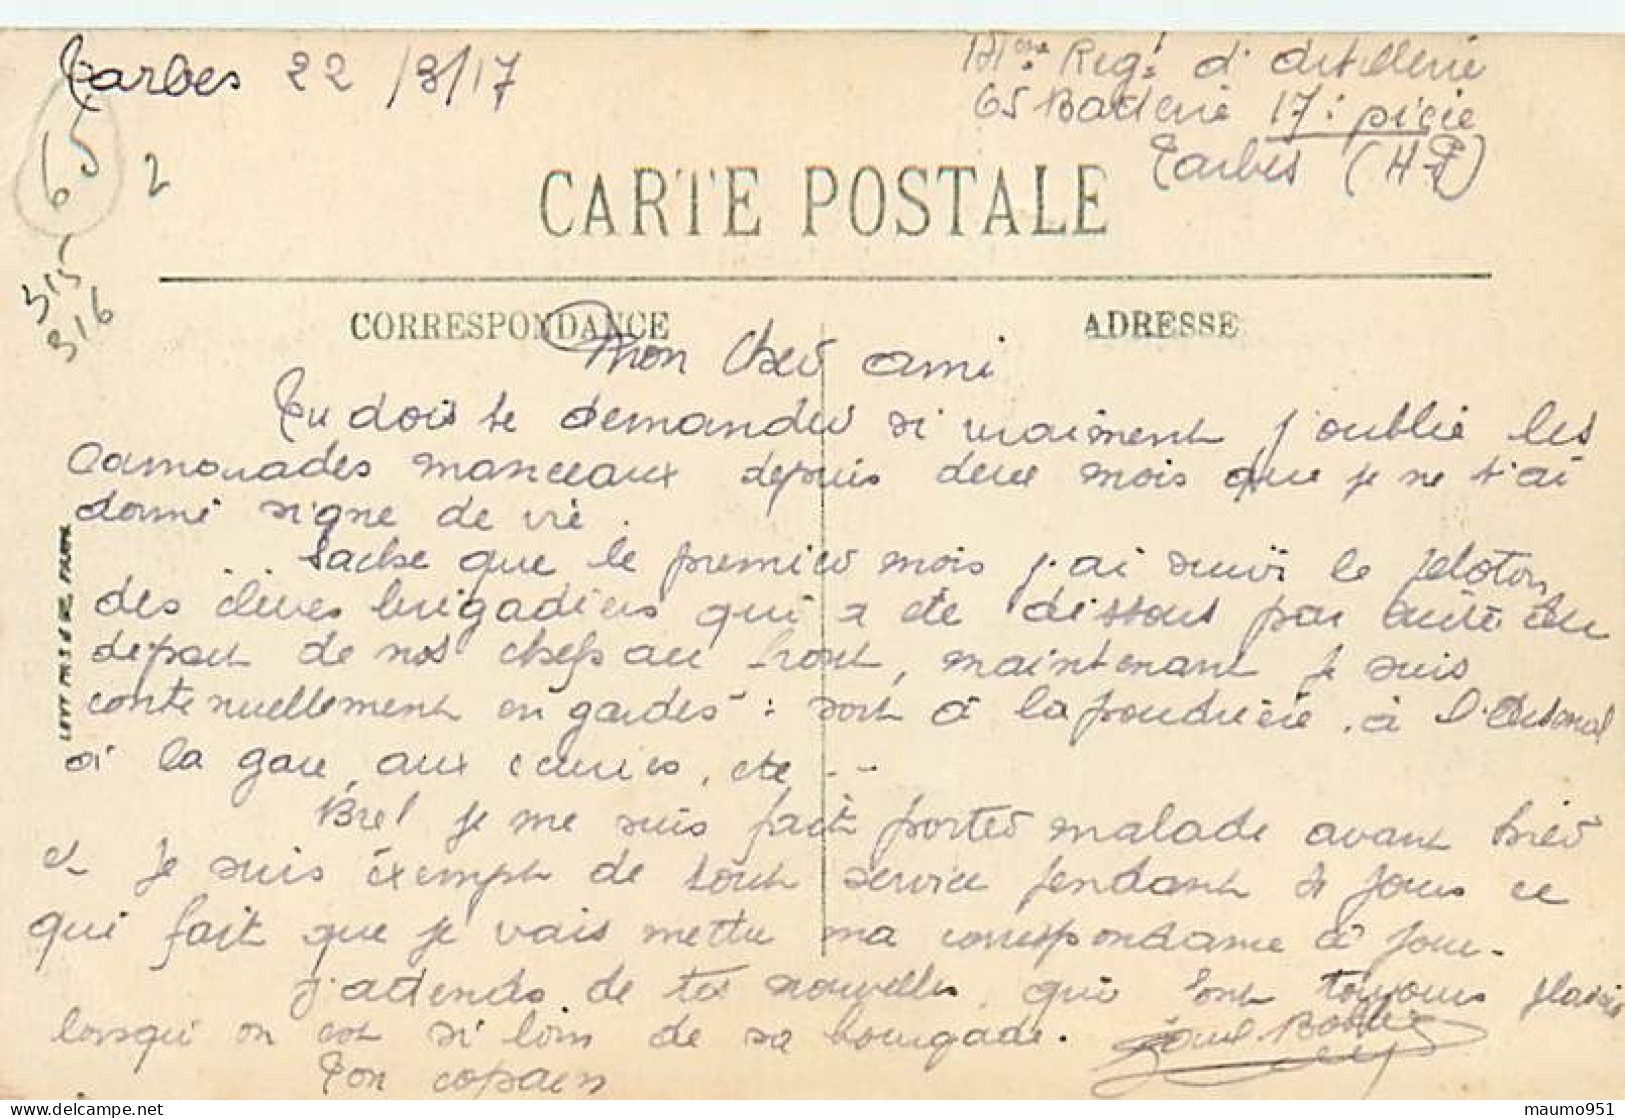 Tarbes 22/3/17
Regt d'Artillerie
65 Batterie 17e pièce
Tarbes (H-P)
65
2
315
316
CARTE POSTALE
CORRESPONDANCE
ADRESSE
Mon cher ami
Tu dois te demander si vraiment j'oublie les
camarades manceaux depuis deux mois que je ne t'ai
donné signe de vie.
Sache que le premier mois j'ai suivi le peloton
des élèves brigadiers qui a été dissous par suite du
départ de nos chefs au front, maintenant je suis
continuellement en gardes : soit à la poudrière, à l'Arsenal
à la gare, aux écuries, etc ...
Bref je me suis fait porter malade avant hier
et je suis exempt de tout service pendant 4 jours ce
qui fait que je vais mettre ma correspondance à jour.
J'attends de tes nouvelles, qui font toujours plaisir
lorsqu'on est si loin de sa bourgade.
Ton copain
maumo951